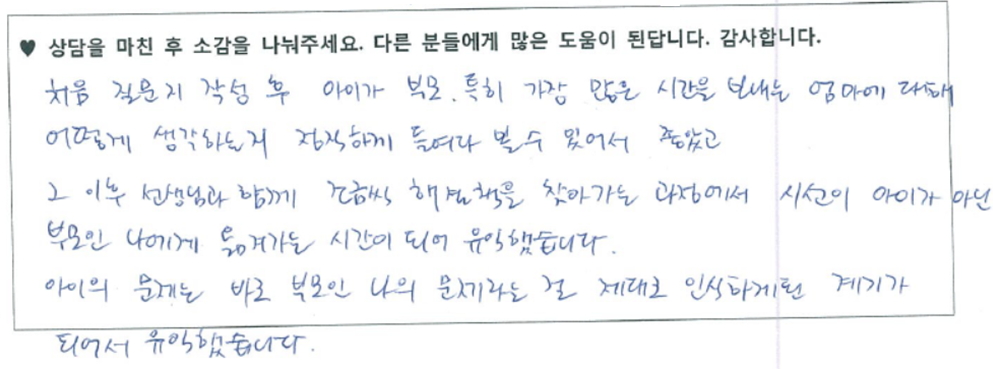 ♥ 상담을 마친 후 소감을 나눠주세요. 다른 분들에게 많은 도움이 된답니다. 감사합니다.
처음 질문지 작성 후 아이가 부모, 특히 가장 많은 시간을 보내는 엄마에 대해
어떻게 생각하는지 정직하게 들여다 볼 수 있어서 좋았고
그 이후 선생님과 함께 조금씩 해결책을 찾아가는 과정에서 시선이 아이가 아닌
부모인 나에게 옮겨가는 시간이 되어 유익했습니다.
아이의 문제는 바로 부모인 나의 문제라는 걸 제대로 인식하게된 계기가
되어서 유익했습니다.